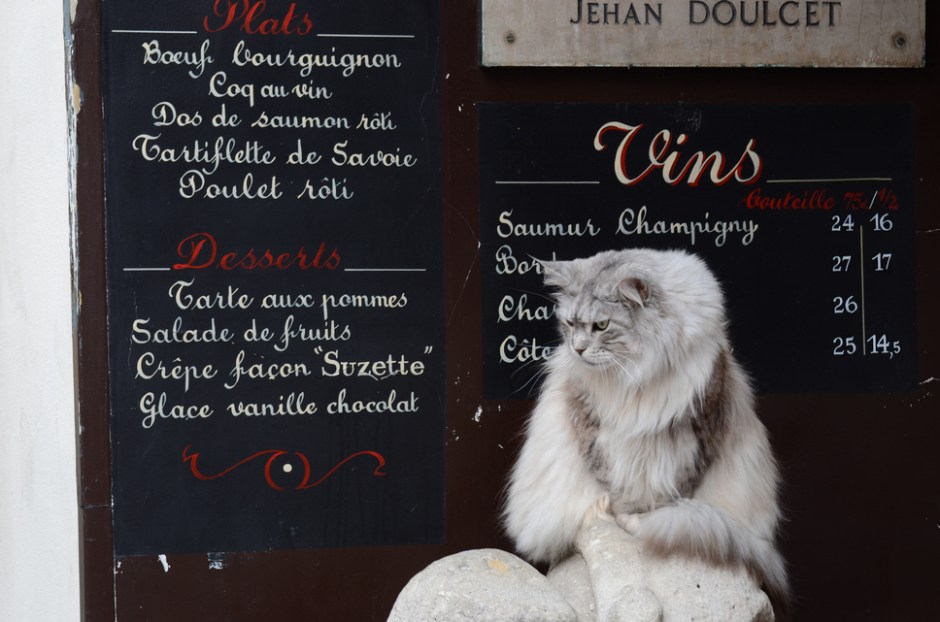 Plats
Bœuf bourguignon
Coq au vin
Dos de saumon rôti
Tartiflette de Savoie
Poulet rôti
Desserts
Tarte aux pommes
Salade de fruits
Crêpe façon "Suzette"
Glace vanille chocolat
JEHAN DOULCET
Vins
bouteille 75cl/½
Saumur Champigny 24 16
27 17
26
25 14,5